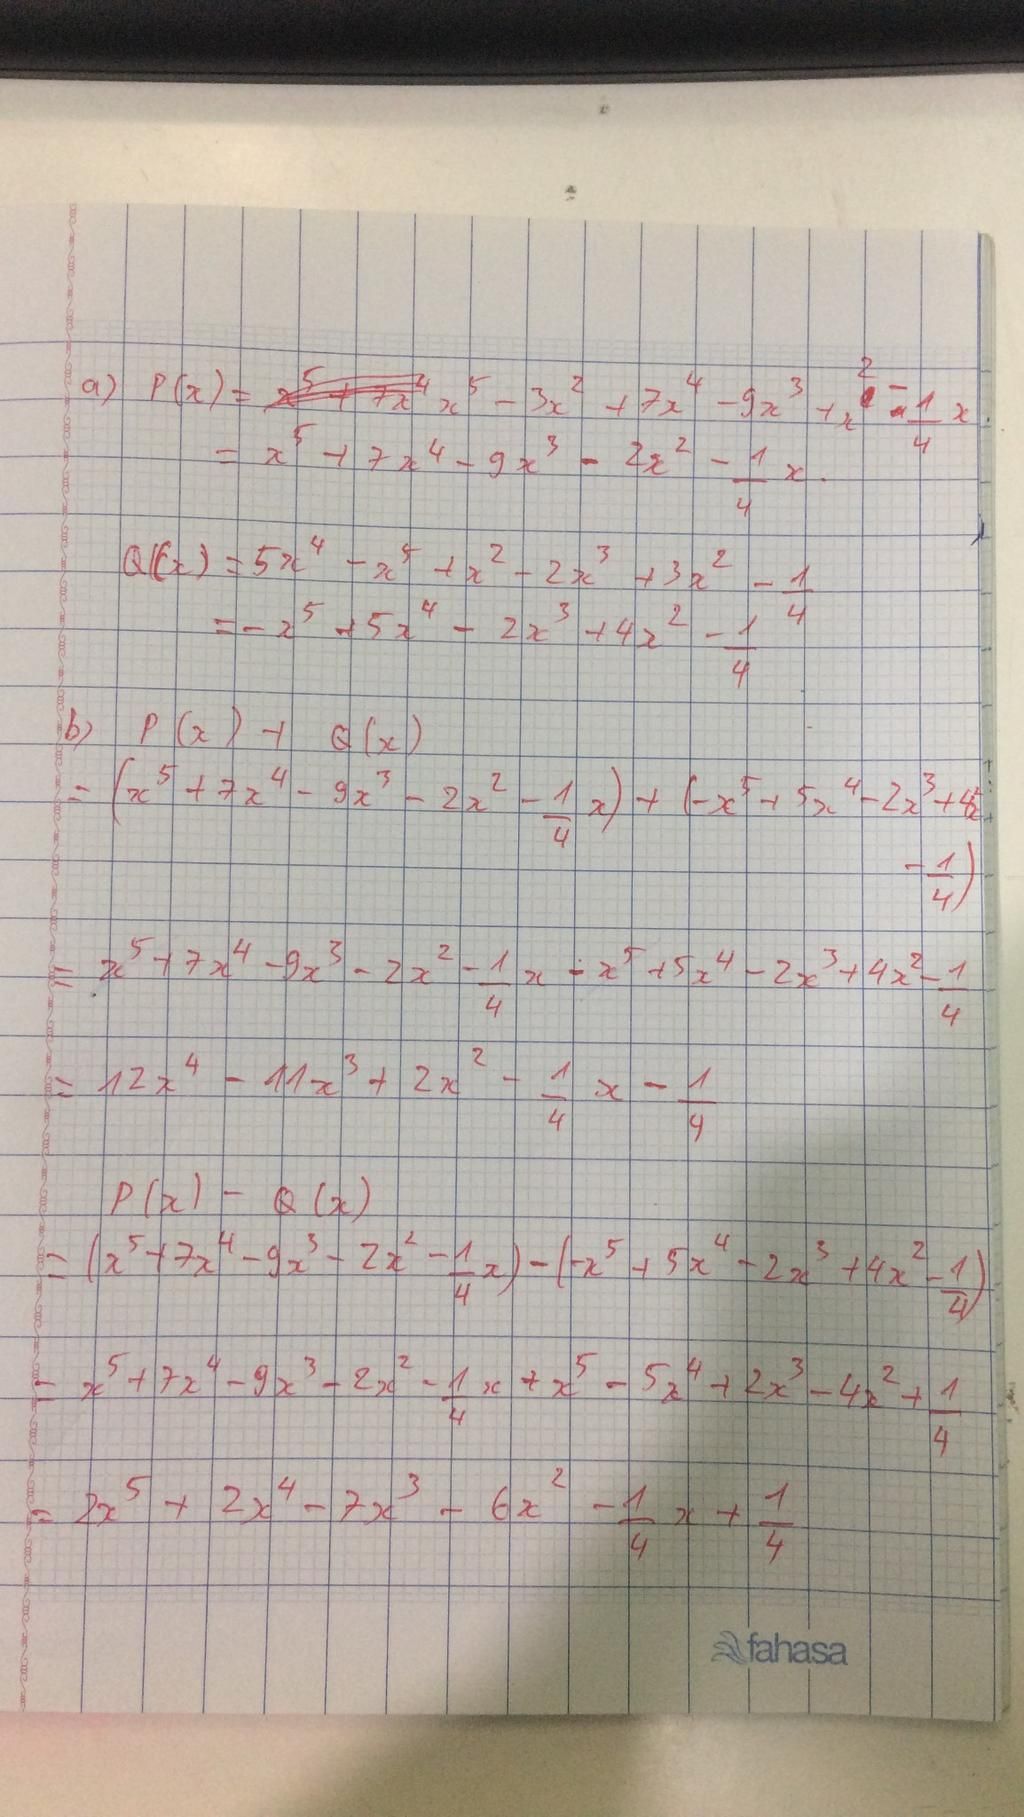 a) P(x) = x⁵ + 7x⁴ x⁵ - 3x² + 7x⁴ - 9x³ + x² - 1/4 x
= x⁵ + 7x⁴ - 9x³ - 2x² - 1/4 x.
Q(x) = 5x⁴ - x⁵ + x² - 2x³ + 3x² - 1/4
= -x⁵ + 5x⁴ - 2x³ + 4x² - 1/4
b) P(x) + Q(x)
= (x⁵ + 7x⁴ - 9x³ - 2x² - 1/4 x) + (-x⁵ + 5x⁴ - 2x³ + 4x²
- 1/4)
= x⁵ + 7x⁴ - 9x³ - 2x² - 1/4 x - x⁵ + 5x⁴ - 2x³ + 4x² - 1/4
= 12x⁴ - 11x³ + 2x² - 1/4 x - 1/4
P(x) - Q(x)
= (x⁵ + 7x⁴ - 9x³ - 2x² - 1/4 x) - (-x⁵ + 5x⁴ - 2x³ + 4x² - 1/4)
= x⁵ + 7x⁴ - 9x³ - 2x² - 1/4 x + x⁵ - 5x⁴ + 2x³ - 4x² + 1/4
= 2x⁵ + 2x⁴ - 7x³ - 6x² - 1/4 x + 1/4
fahasa